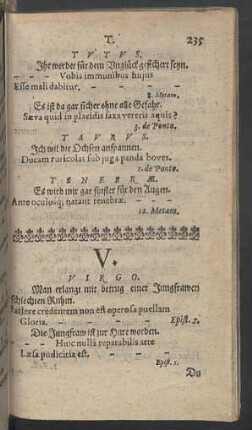 T. 235
TVTVS.
Ihr werdet für dem Vnglück gesichert seyn.
– – – Vobis immunibus hujus
Esse mali dabitur. – – – –
8. Metam.
Es ist da gar sicher ohne alle Gefahr.
Sæva quid in placidis saxa vereris aquis?
3. de Ponto.
TAVRVS.
Ich wil die Ochsen anspannen.
Ducam ruricolas sub juga panda boves.
1. de Ponto.
TENEBRÆ.
Es wird mir gar finster für den Augen.
Ante oculosq; natant tenebræ. – –
12. Metam.
V.
VIRGO.
Man erlangt mit betrug einer Jungfrawen
schlechten Ruhm.
Fallere credentem non est operosa puellam
Gloria. – – – – Epist. 2.
Die Jungfraw ist zur Hure worden.
– – Huic nullâ reparabilis arte
Læsa pudicitia est. – – –
Epist. 5.
Du